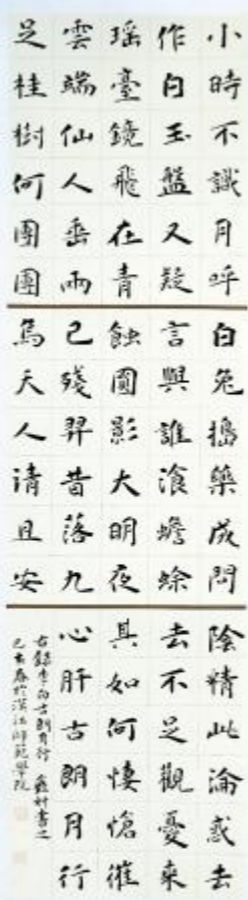 小時不識月呼
作白玉盤又疑
瑤臺鏡飛在青
雲端仙人垂兩
足桂樹何團團
白兔搗藥成問
言與誰飡蟾蜍
蝕圓影大明夜
已殘羿昔落九
烏天人清且安
陰精此淪惑去
去不足觀憂來
其如何悽愴摧
心肝古朗月行
右錄李白古朗月行 書之
己亥春於漢江師範學院